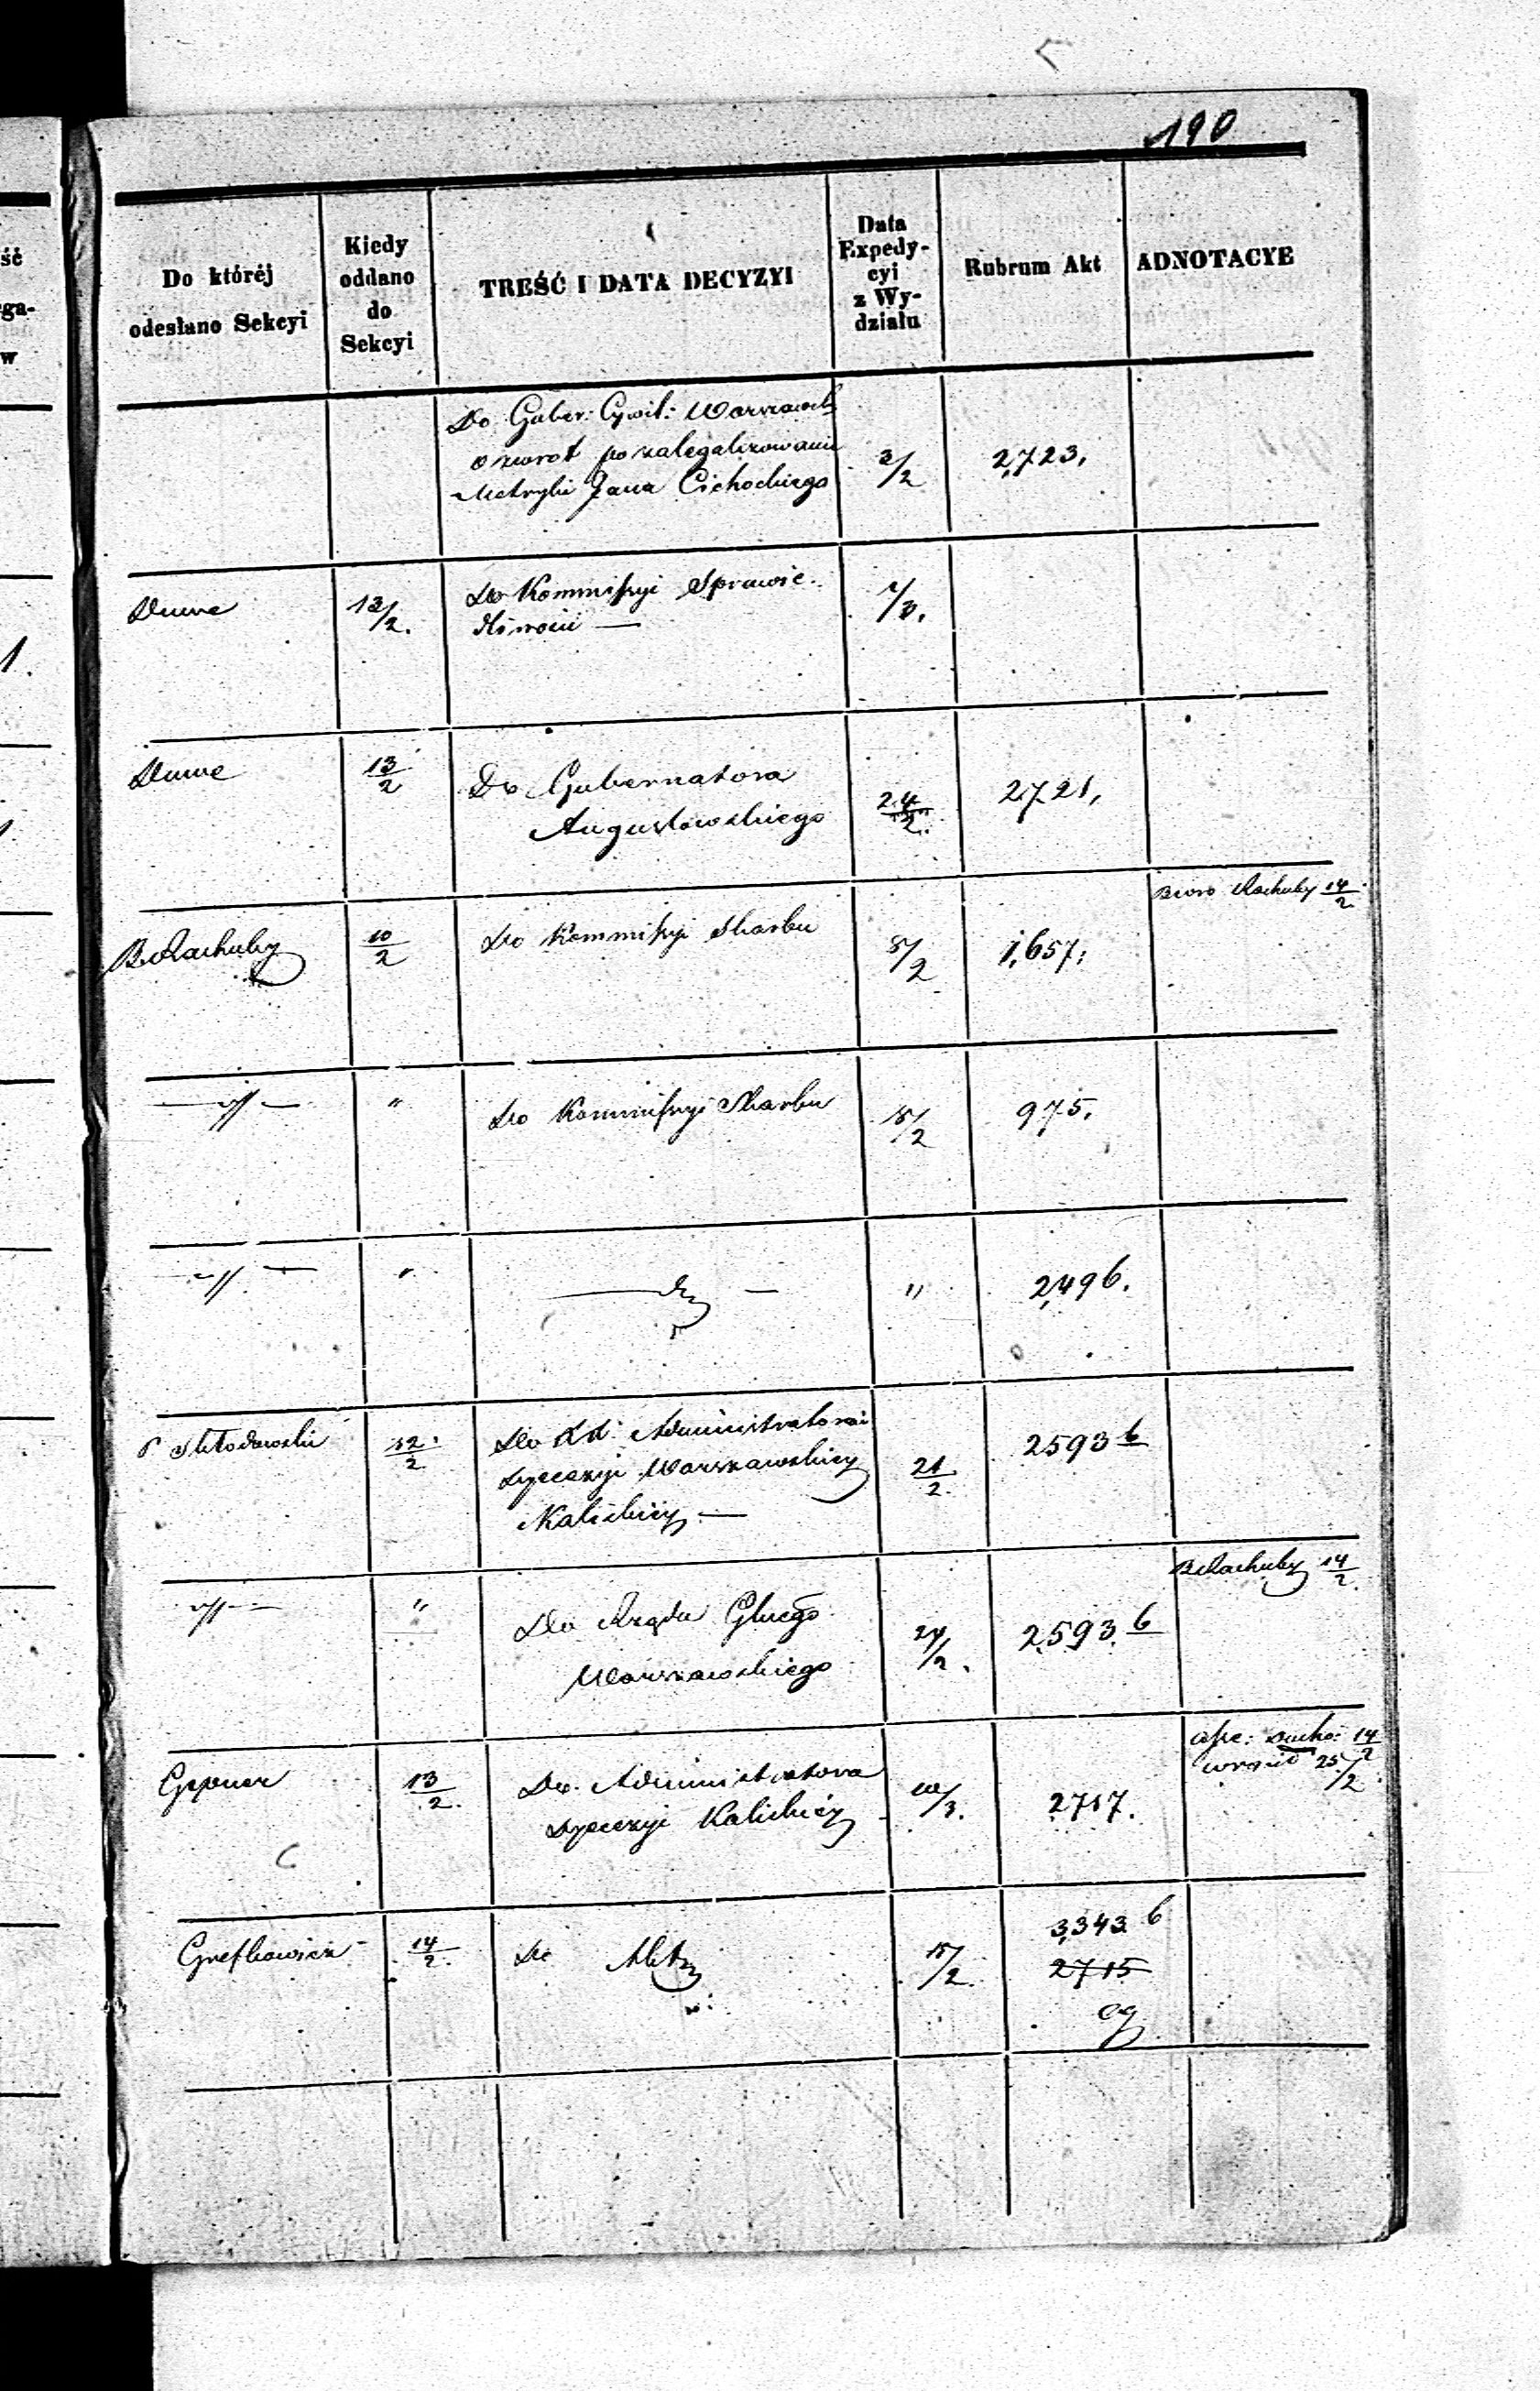 190
Do któréj odesłano Sekcyi
Kiedy oddano do Sekcyi
TREŚĆ I DATA DECYZYI
Data Expedycyi z Wydziału
Rubrum Akt
ADNOTACYE
Do Guber: Cywil: Warszawsk
o zwrot po zalegalizowaniu
Metryki Jana Cichockiego
3/2
2,723.
Dume
13/2.
Do Kommissyi Sprawie
dliwości —
1/3.
Dume
13/2
Do Gubernatora
Augustowskiego
24/2.
2,721,
B Rachuby
10/2
Do Kommissyi Skarbu
15/2
1,657.
Biuro Rachuby 14/2
— " —
"
Do Kommissyi Skarbu
15/2
975.
— " —
"
"
2,496.
P Młodowski
12/2
Do XX: Administratorów
Dyecezyi Warszawskiey
Kaliskiey —
21/2.
2593 6
— " —
"
Do Rządu Głnego
Warszawskiego
24/2.
2,593. 6
B Rachuby 14/2.
Gepner
13/2.
Do Administratora
Dyecezyi Kaliskiéy
10/3.
2717.
14/2
wrócił 25/2.
14/2.
Do
15/2.
3,343 6
2715